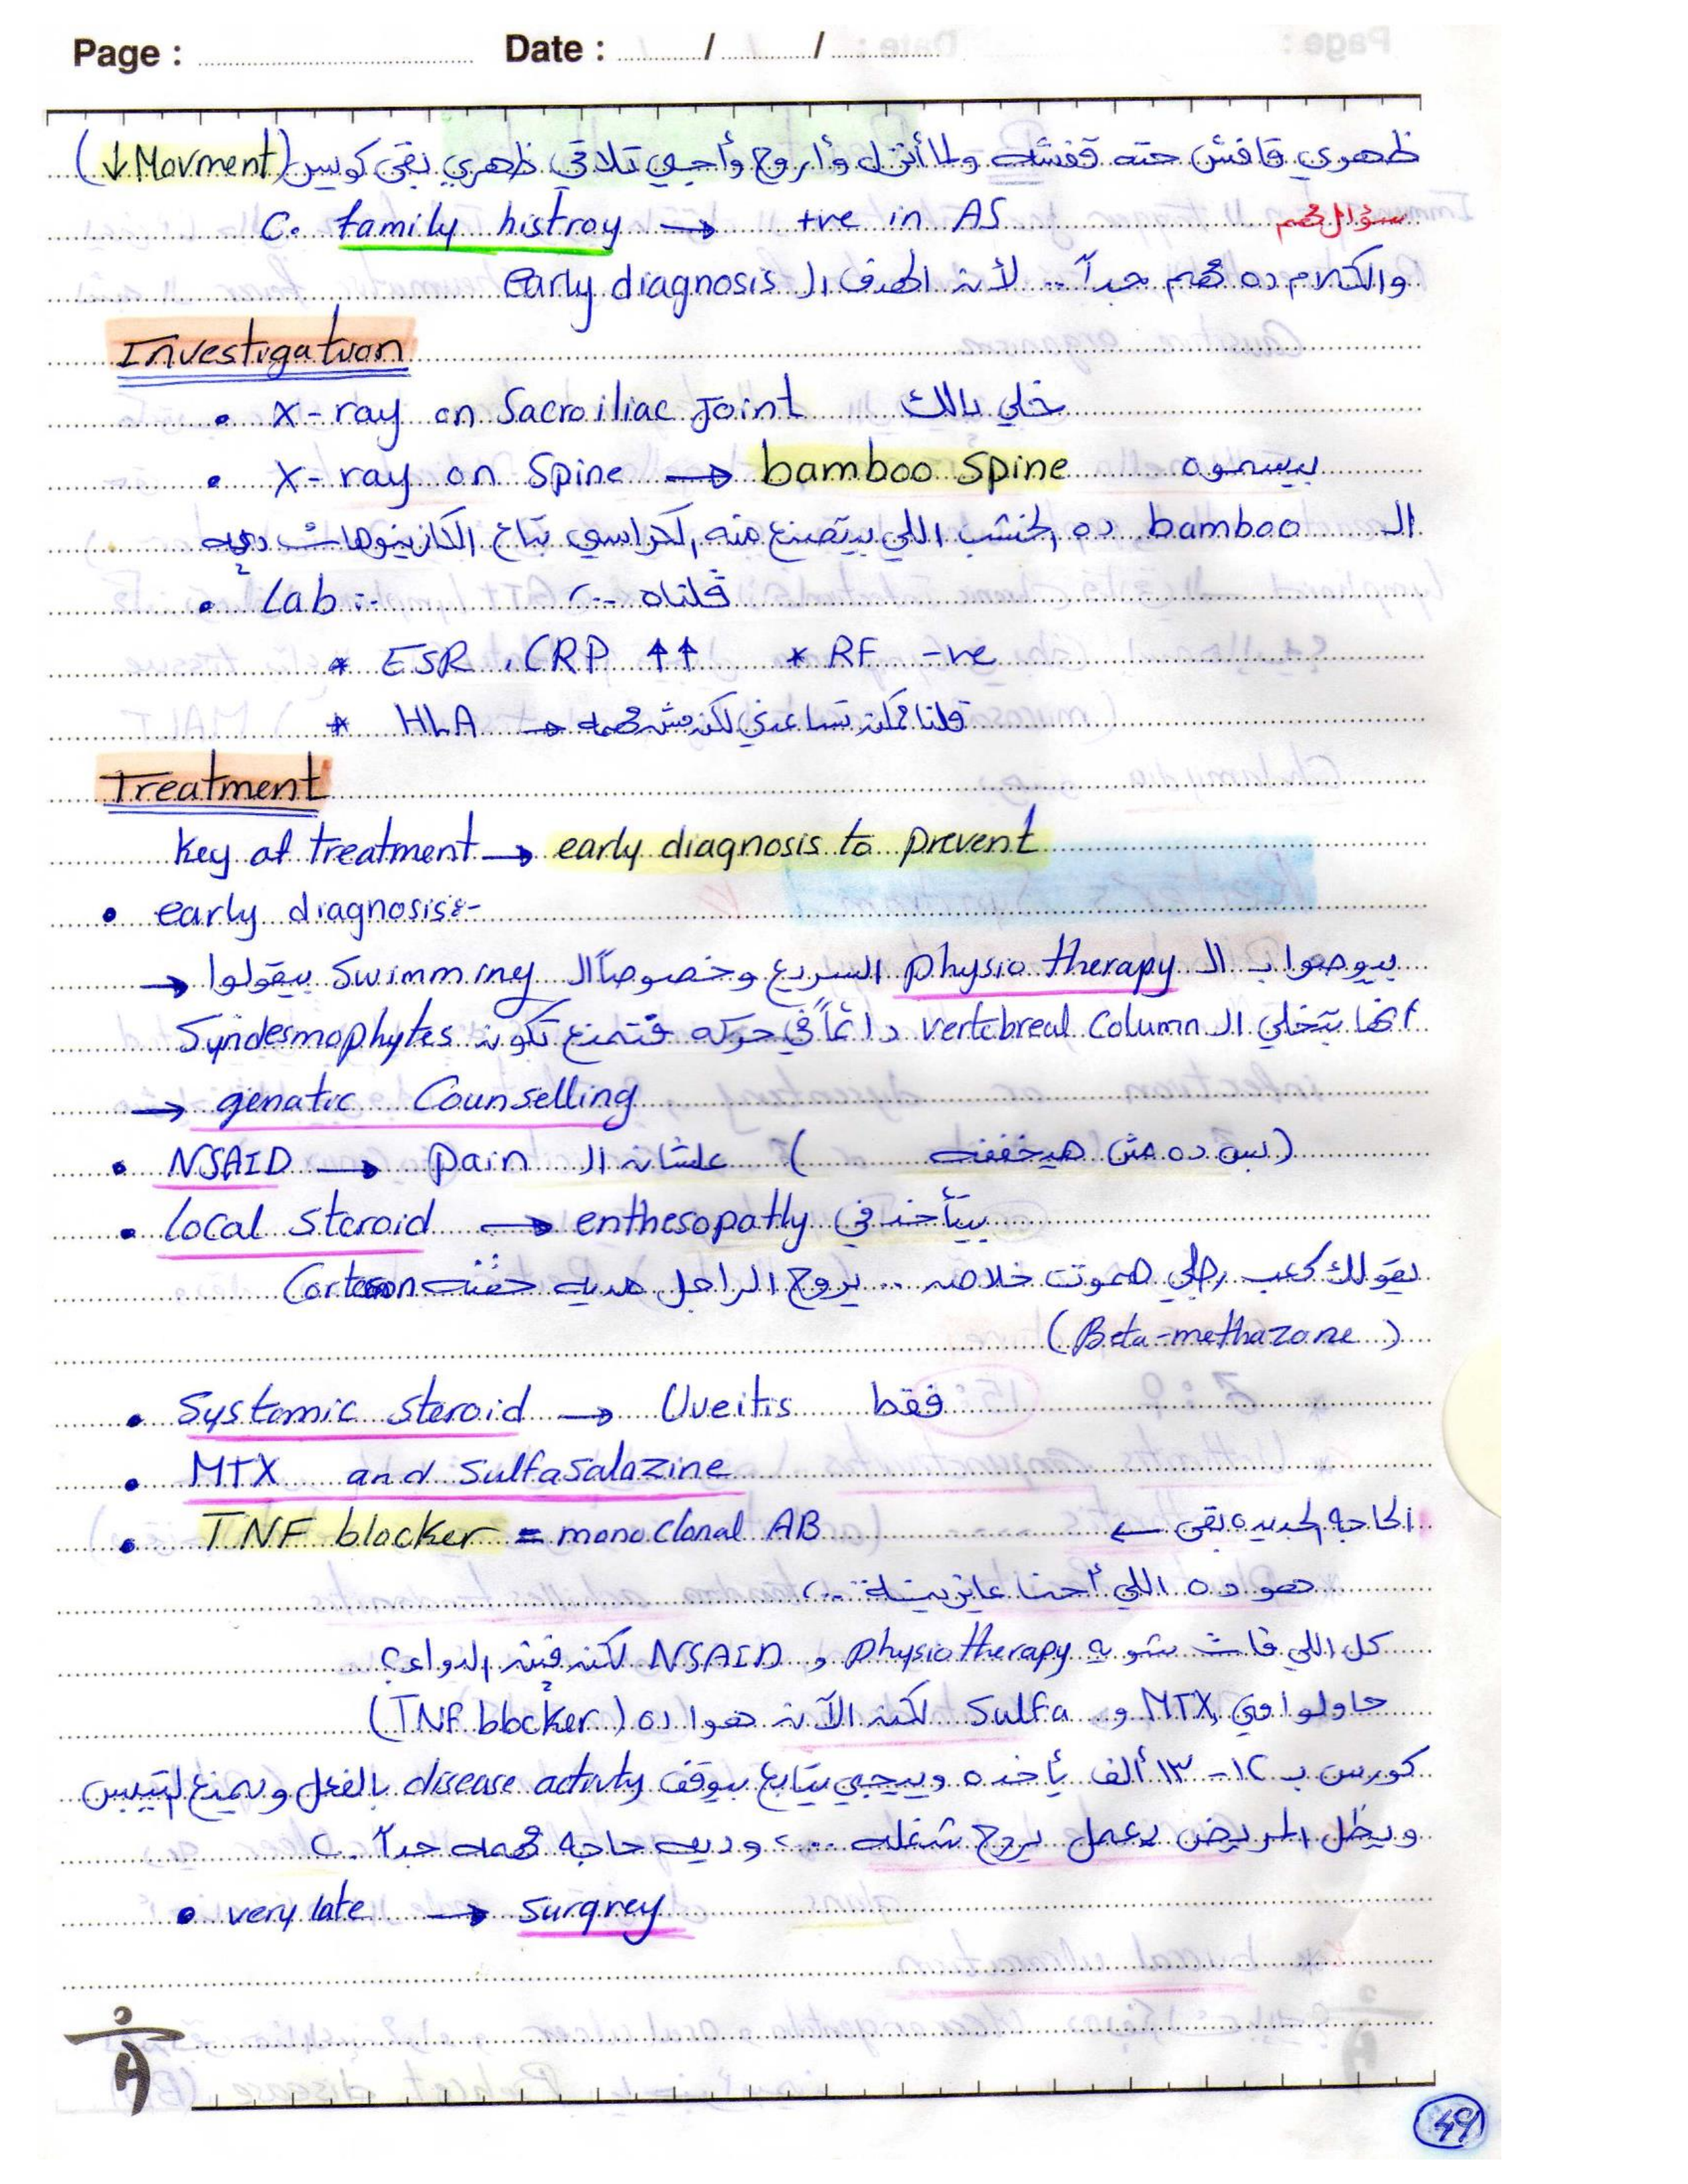 Page : Date : / /
ظهري قافش حته قفشه ولما أنزل وأروح وأجي تلاقي ظهري بقى كويس (↓ Movment)
C. family histroy → +ve in AS سؤال مهم
والكلام ده مهم جداً .. لأن الهدف الـ early diagnosis
Investigation
• X-ray on Sacroiliac Joint خلي بالك
• X-ray on Spine → bamboo Spine بيسموه
الـ bamboo ده الخشب اللي بيتصنع منه الكراسي بتاع الكازينوهات ديه
• Lab :- قلناه ..
* ESR , CRP ↑↑ * RF -ve
* HLA → قلنا ممكن تساعدني لكن مش مهمه
Treatment
Key of treatment → early diagnosis to prevent
• early diagnosis:-
→ بيوصوا بـ الـ physio therapy السريع وخصوصاً الـ Swimming بيقولوا
انها بتخلي الـ vertebreal Column دائماً في حركه فتمنع تكون Syndesmophytes
→ genatic Counselling
• NSAID → pain علشان الـ (بس ده مش هيخففه)
• Local Steroid → enthesopathy بيتأخذ في
يقولك كعب رجلي هموت خلاص .. يروح الراجل مديه حقنه Cortison
(Beta-methazone)
• Systemic steroid → Uveitis فقط
• MTX and Sulfasalazine
• TNF blocker = monoclonal AB الحاجه الجديده بقى ←
هو ده اللي أحنا عايزينه ..
كل اللي فات شويه physiotherapy و NSAID لكن فين الدواء؟
حاولوا في MTX و Sulfa لكن الآن هوا ده (TNF blocker)
كورس بـ ١٢ - ١٣ ألف يأخده وييجي يتابع بيوقف disease activty بالفعل ويمنع التيبس
ويظل المريض يعمل يروح شغله ... وديه حاجه مهمه جداً .
• very late → Surgrey
49